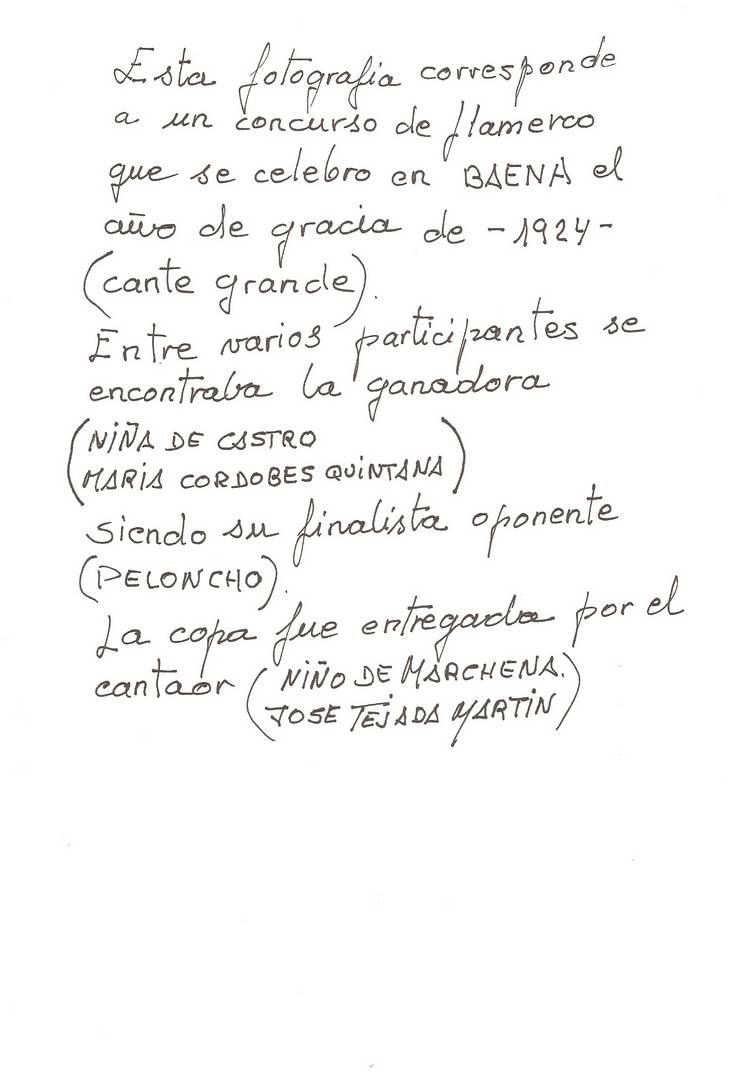 Esta fotografia corresponde
a un concurso de flamenco
que se celebro en BAENA el
año de gracia de -1924-
(cante grande).
Entre varios participantes se
encontraba la ganadora
(NIÑA DE CASTRO
MARIA CORDOBES QUINTANA)
siendo su finalista oponente
(PELONCHO).
La copa fue entregada por el
cantaor (NIÑO DE MARCHENA.
JOSE TEJADA MARTIN)